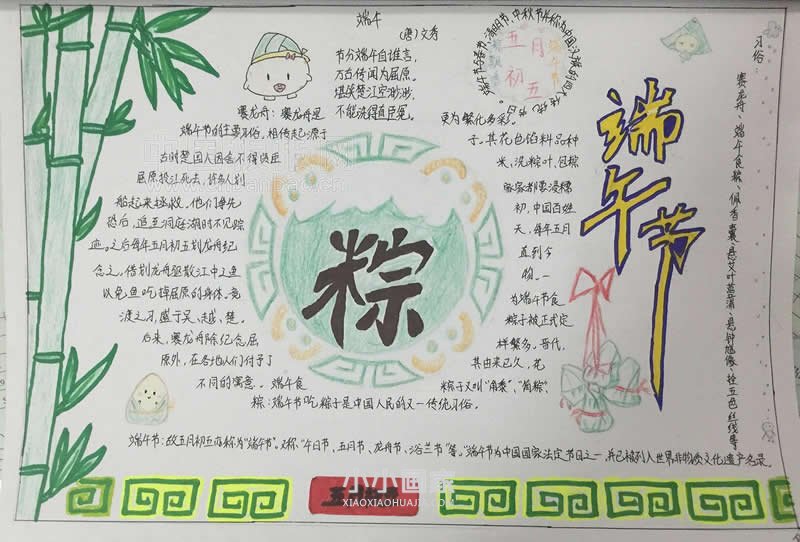 端午
(唐)文秀
节分端午自谁言,
万古传闻为屈原。
堪笑楚江空渺渺,
不能洗得直臣冤。
端午节与春节、清明节、中秋节并称为中国汉族的四大传统节日。
五月
初五
端午节
赛龙舟:赛龙舟是
端午节的主要习俗,相传起源于
古时楚国人因舍不得贤臣
屈原投江死去,许多人划
船赶来拯救。他们争先
恐后,追至洞庭湖时不见踪
迹。之后每年五月初五划龙舟纪
念之。借划龙舟驱散江中之鱼
以免鱼吃掉屈原的身体。竞
渡之习,盛于吴、越、楚。
后来,赛龙舟除纪念屈
原外,在各地人们付予了
不同的寓意。端午食
粽:端午节吃粽子是中国人民的又一传统习俗。
粽子又叫“角黍”、“筒粽”
其由来已久,花
样繁多。晋代,
粽子被正式定
为端午节食
物。一
直到今
天,每年五月
初,中国百姓
家家都要浸糯
米、洗粽叶、包粽
子,其花色馅料品种
更为繁化多彩。
粽
端午节
习俗:
赛龙舟、端午食粽、佩香囊、悬艾叶菖蒲、悬钟馗像、拴五色丝线等
端午节:故五月初五亦称为“端午节”。又称:“午日节、五月节、龙舟节、浴兰节”等。“端午节”为中国国家法定节日之一,并已被列入世界非物质文化遗产名录。
小小画家
XIAOXIAOHUAJIA.COM